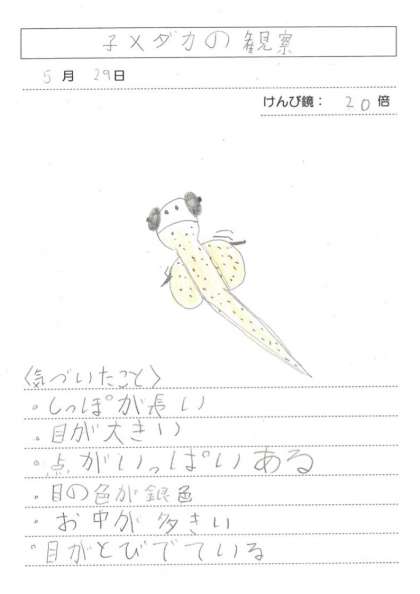 子メダカの観察
5月 29日
けんび鏡： 20倍
〈気づいたこと〉
・しっぽが長い
・目が大きい
・点がいっぱいある
・目の色が銀色
・お中が多きい
・目がとびでている